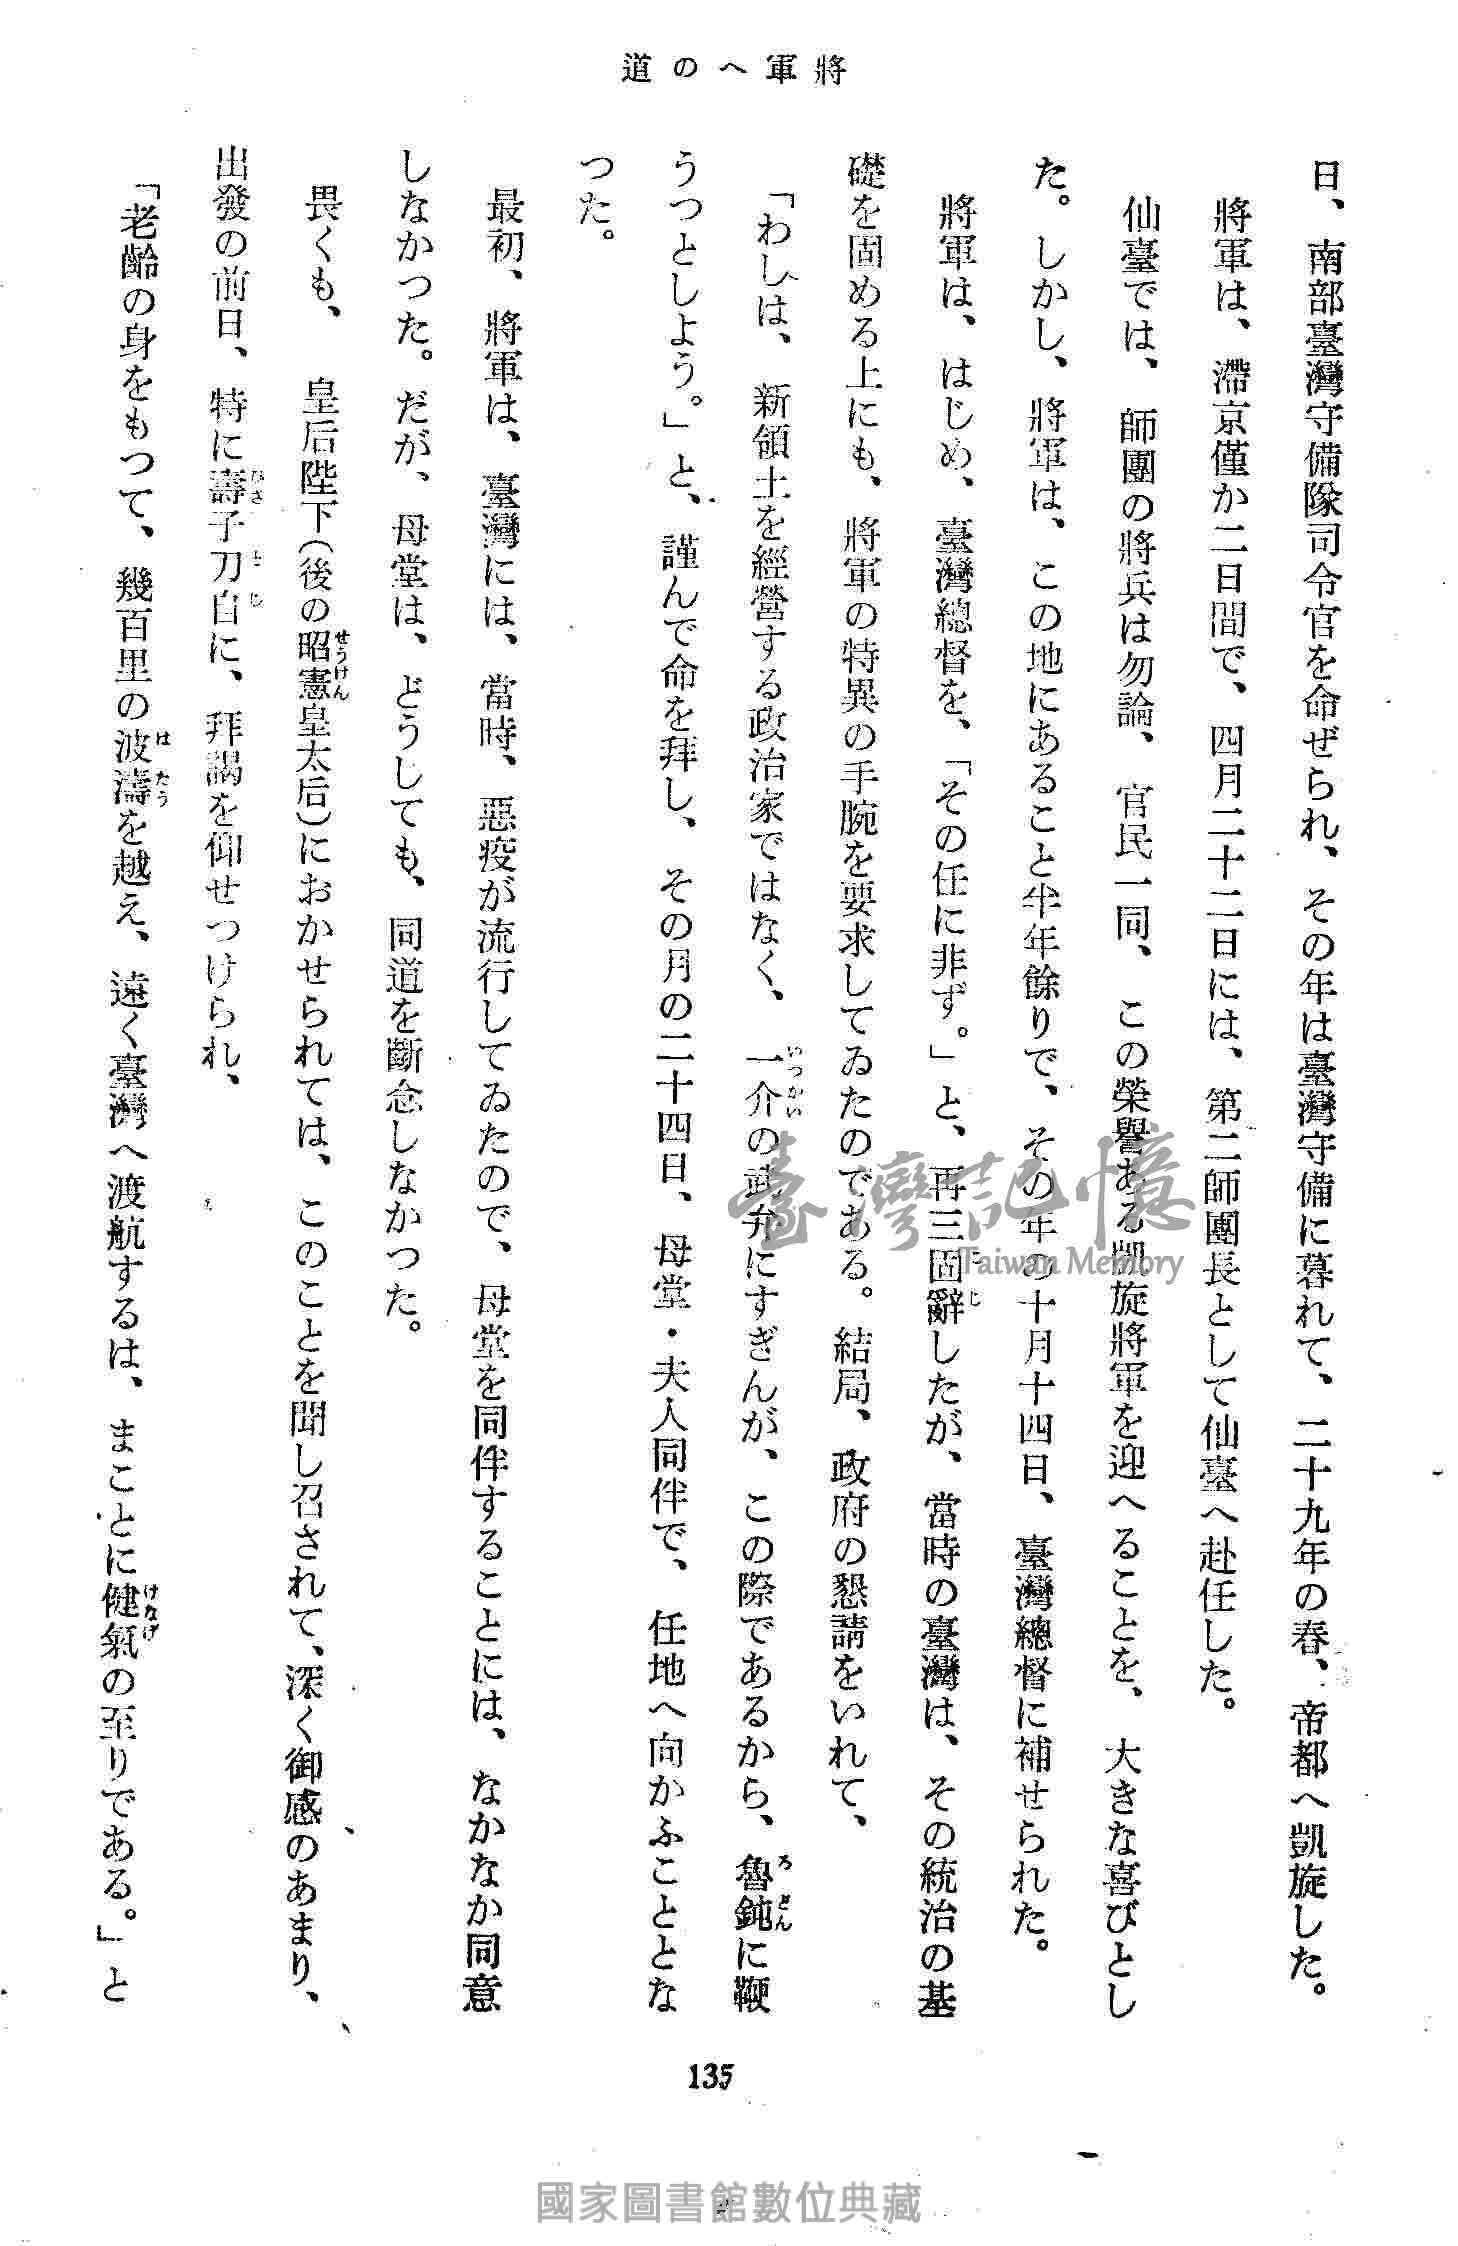 將軍への道
日、南部臺灣守備隊司令官を命ぜられ、その年は臺灣守備に暮れて、二十九年の春、帝都へ凱旋した。
將軍は、滯京僅か二日間で、四月二十二日には、第二師團長として仙臺へ赴任した。
仙臺では、師團の將兵は勿論、官民一同、この榮譽ある凱旋將軍を迎へることを、大きな喜びとし
た。しかし、將軍は、この地にあること半年餘りで、その年の十月十四日、臺灣總督に補せられた。
將軍は、はじめ、臺灣總督を、「その任に非ず。」と、再三固辭したが、當時の臺灣は、その統治の基
礎を固める上にも、將軍の特異の手腕を要求してゐたのである。結局、政府の懇請をいれて、
「わしは、新領土を經營する政治家ではなく、一介の武弁にすぎんが、この際であるから、魯鈍に鞭
うつとしよう。」と、謹んで命を拜し、その月の二十四日、母堂・夫人同伴で、任地へ向かふこととな
つた。
最初、將軍は、臺灣には、當時、惡疫が流行してゐたので、母堂を同伴することには、なかなか同意
しなかつた。だが、母堂は、どうしても、同道を斷念しなかつた。
畏くも、皇后陛下(後の昭憲皇太后)におかせられては、このことを聞し召されて、深く御感のあまり、
出發の前日、特に壽子刀自に、拜謁を仰せつけられ、
「老齡の身をもつて、幾百里の波濤を越え、遠く臺灣へ渡航するは、まことに健氣の至りである。」と
135
臺灣記憶
Taiwan Memory
國家圖書館數位典藏